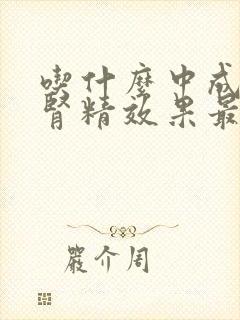 喫什麼中成
腎精效果最
嚴介周